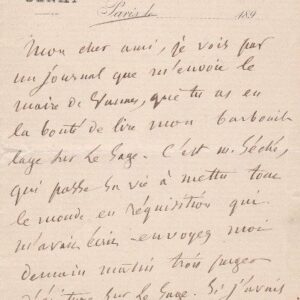 Paris le 189
Mon cher ami, je vois par
un journal que m'envoie le
maire de Vannes, que tu as eu
la bonté de lire mon barbouil
lage sur Le Sage. C'est m. Séché,
qui passe sa vie à mettre tout
le monde en réquisition qui
m'avait écrit envoyez moi
demain matin trois pages
sur Le Sage. Si j'avais